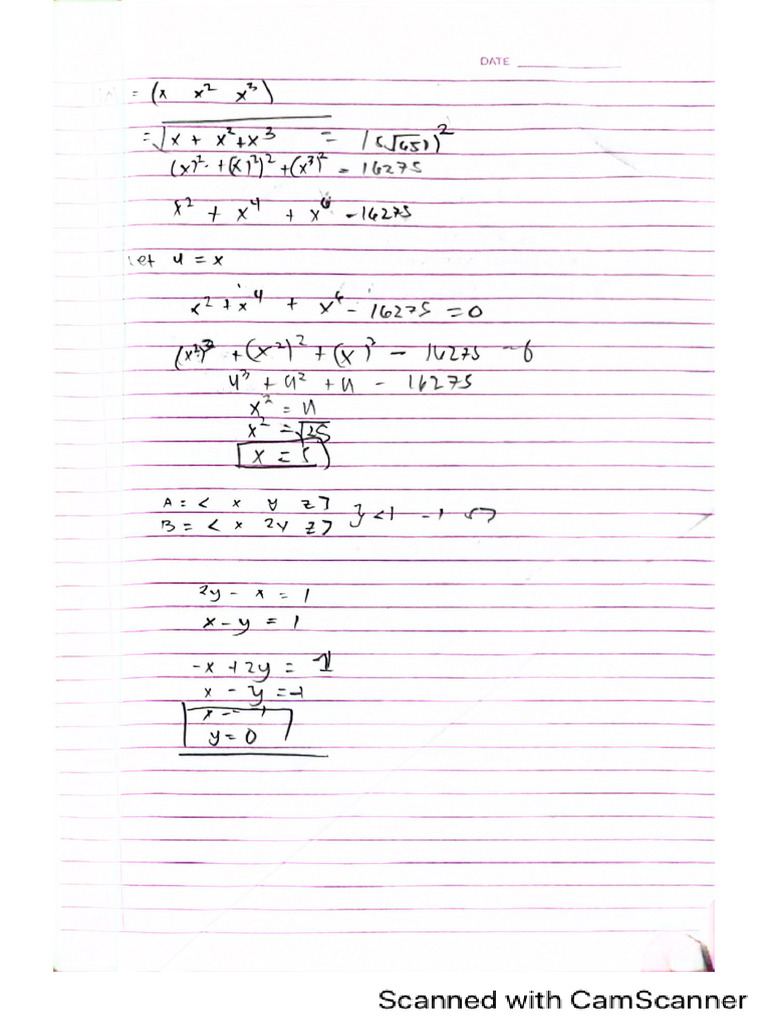 DATE
= (x x² x³)
= √x + x² + x³ = (5√651)²
(x)² + (x²)² + (x³)² = 16275
x² + x⁴ + x⁶ - 16275
let u = x
x² + x⁴ + x⁶ - 16275 = 0
(x²)³ + (x²)² + (x)² - 16275 - 0
u³ + u² + u - 16275
x² = u
x² = √25
x = 5
A = < x y z >
B = < x 2y z > } <1 -1
2y - x = 1
x - y = 1
-x + 2y = 1
x - y = -1
x = -1
y = 0
Scanned with CamScanner